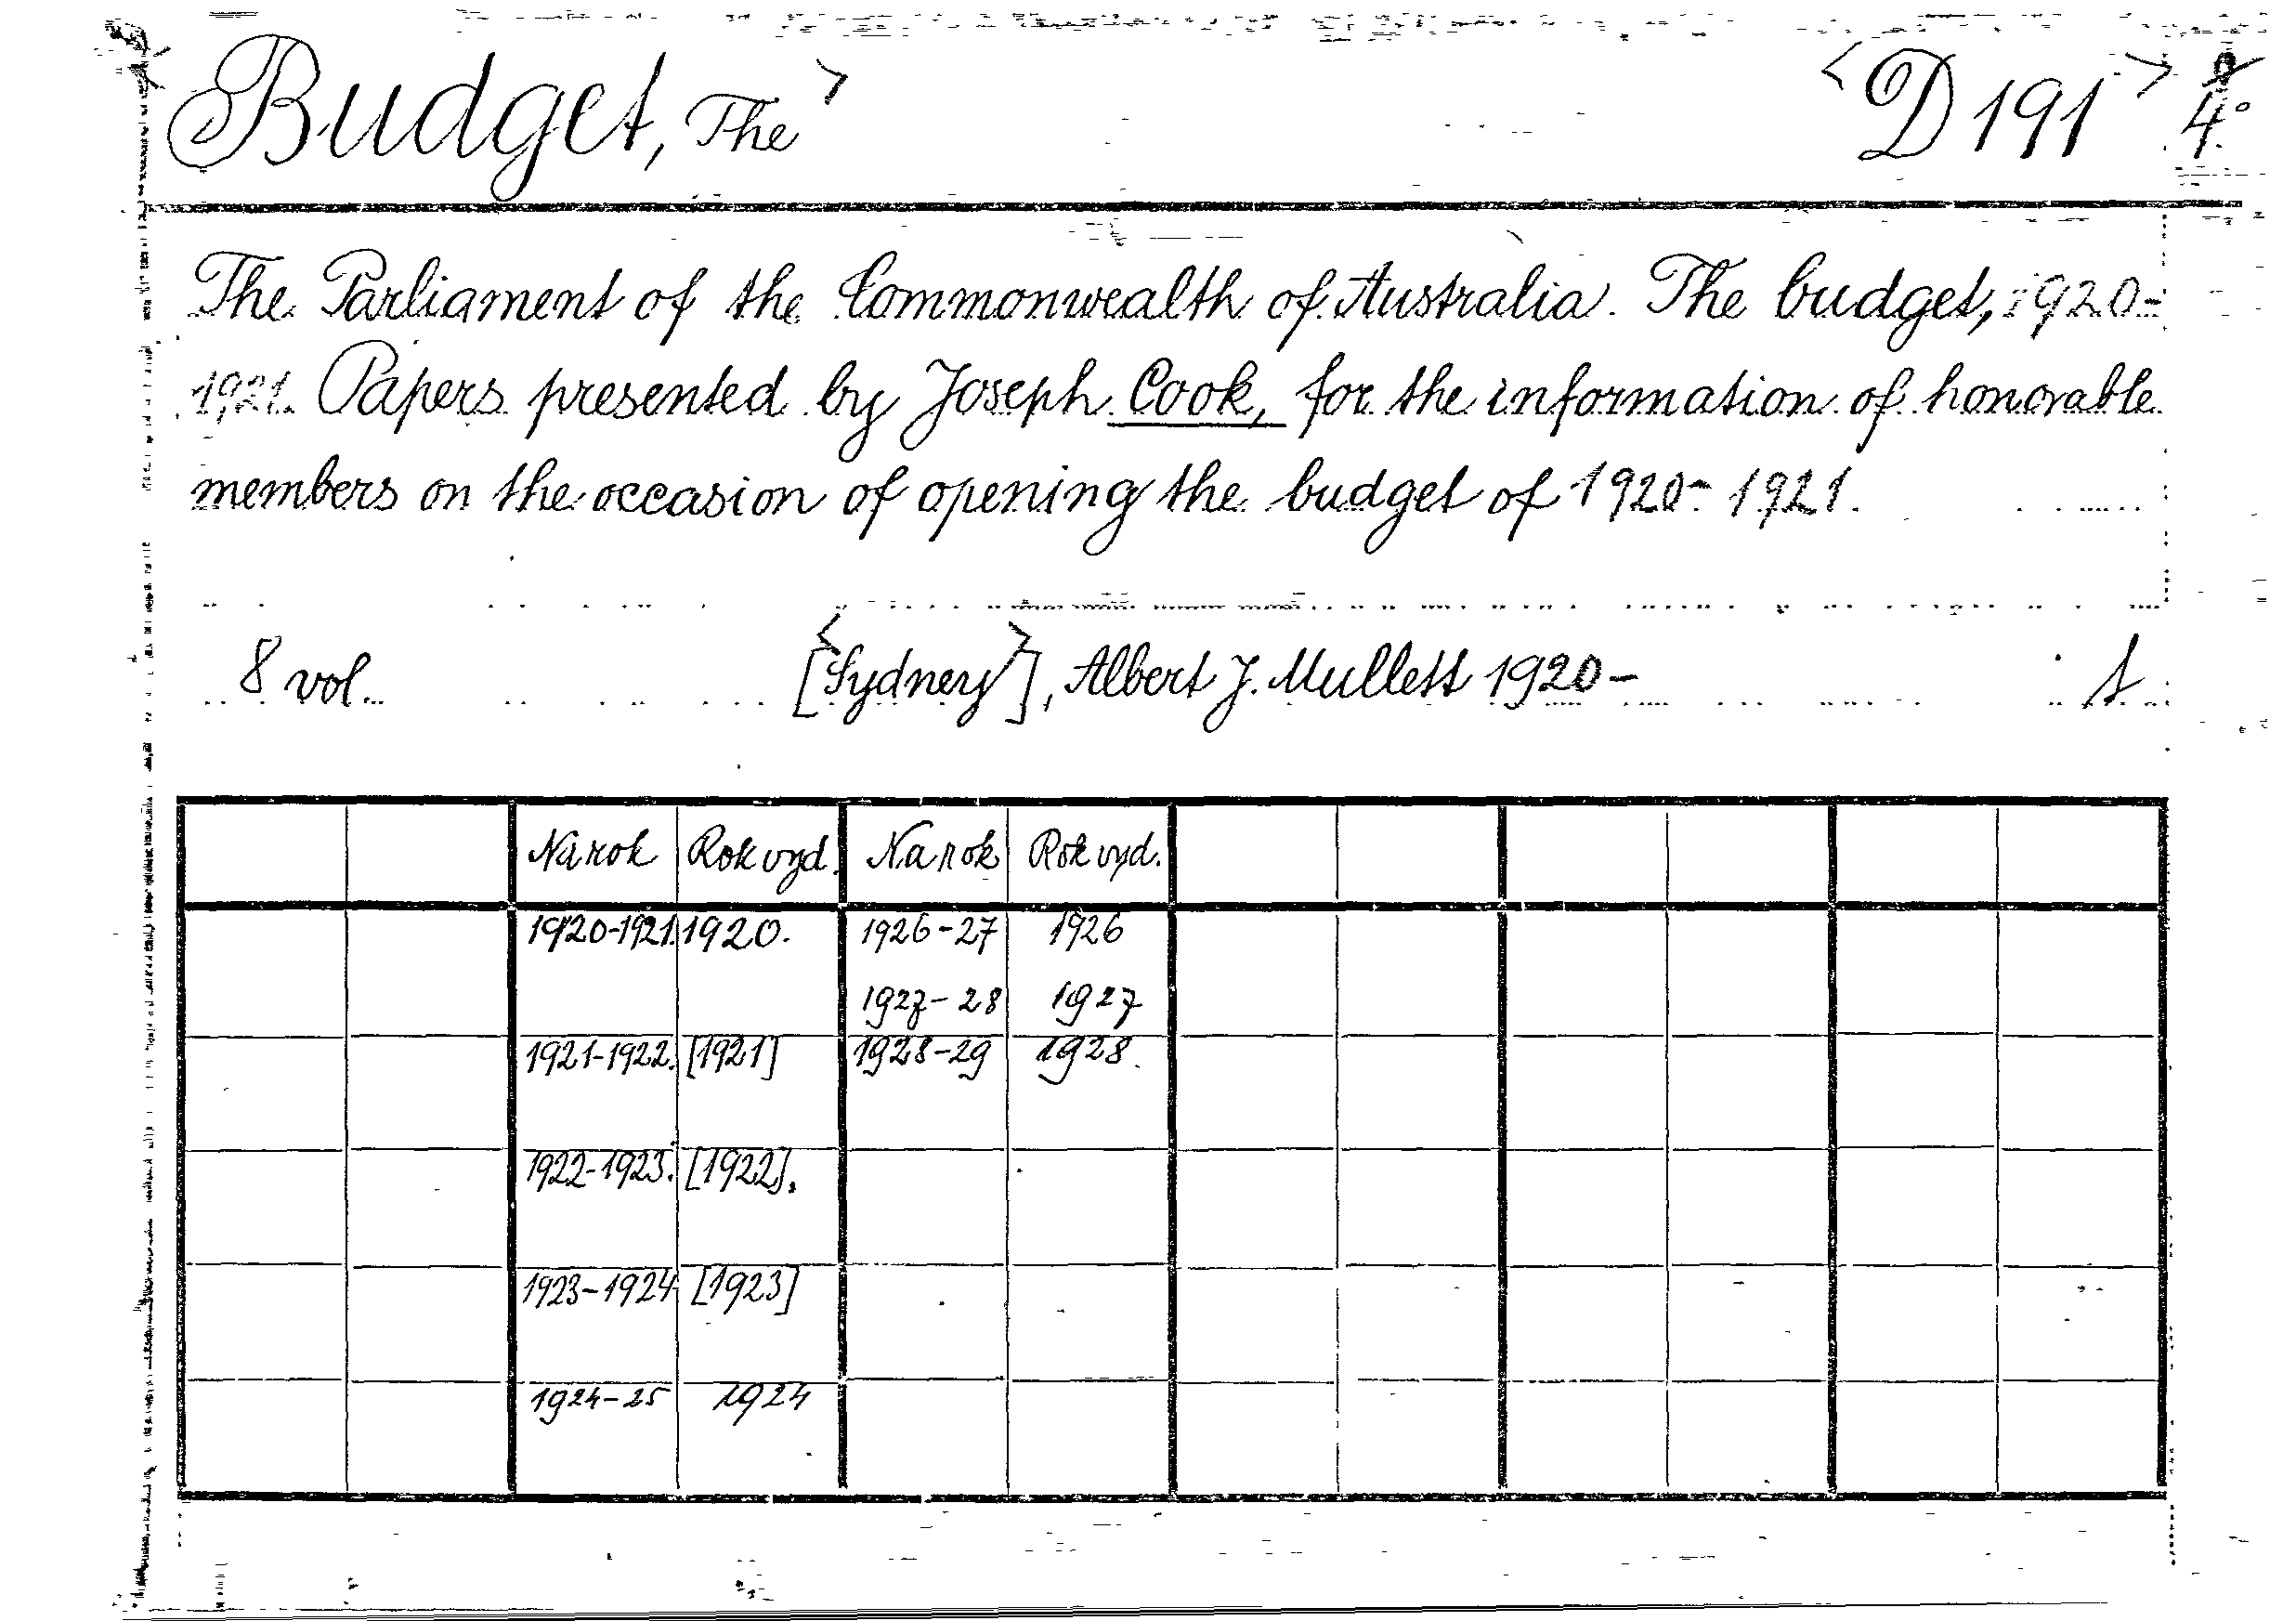 Budget, The > < D 191 > 4°
The Parliament of the Commonwealth of Australia. The budget, 1920-
1921. Papers presented by Joseph Cook, for the information of honorable
members on the occasion of opening the budget of 1920-1921.
8 vol. [<Sydney>], Albert J. Mullett 1920-
Na rok Rok vyd. Na rok Rok vyd.
1920-1921. 1920. 1926-27 1926
1927-28 1927
1921-1922. [1921] 1928-29 1928.
1922-1923. [1922].
1923-1924 [1923]
1924-25 1924